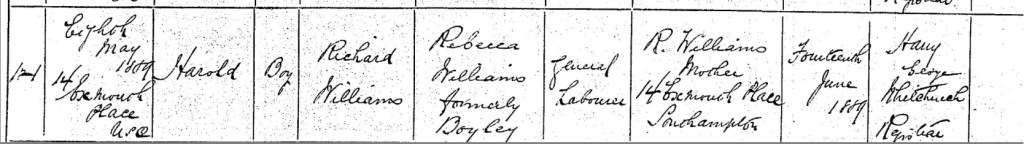 Eighth
May
1889
14 Exmouth
Place
Harold
Boy
Richard
Williams
Rebecca
Williams
formerly
Boyley
General
Labourer
R. Williams
Mother
14 Exmouth Place
Southampton
Fourteenth
June
1889
Harry
George
Whitchurch
Registrar